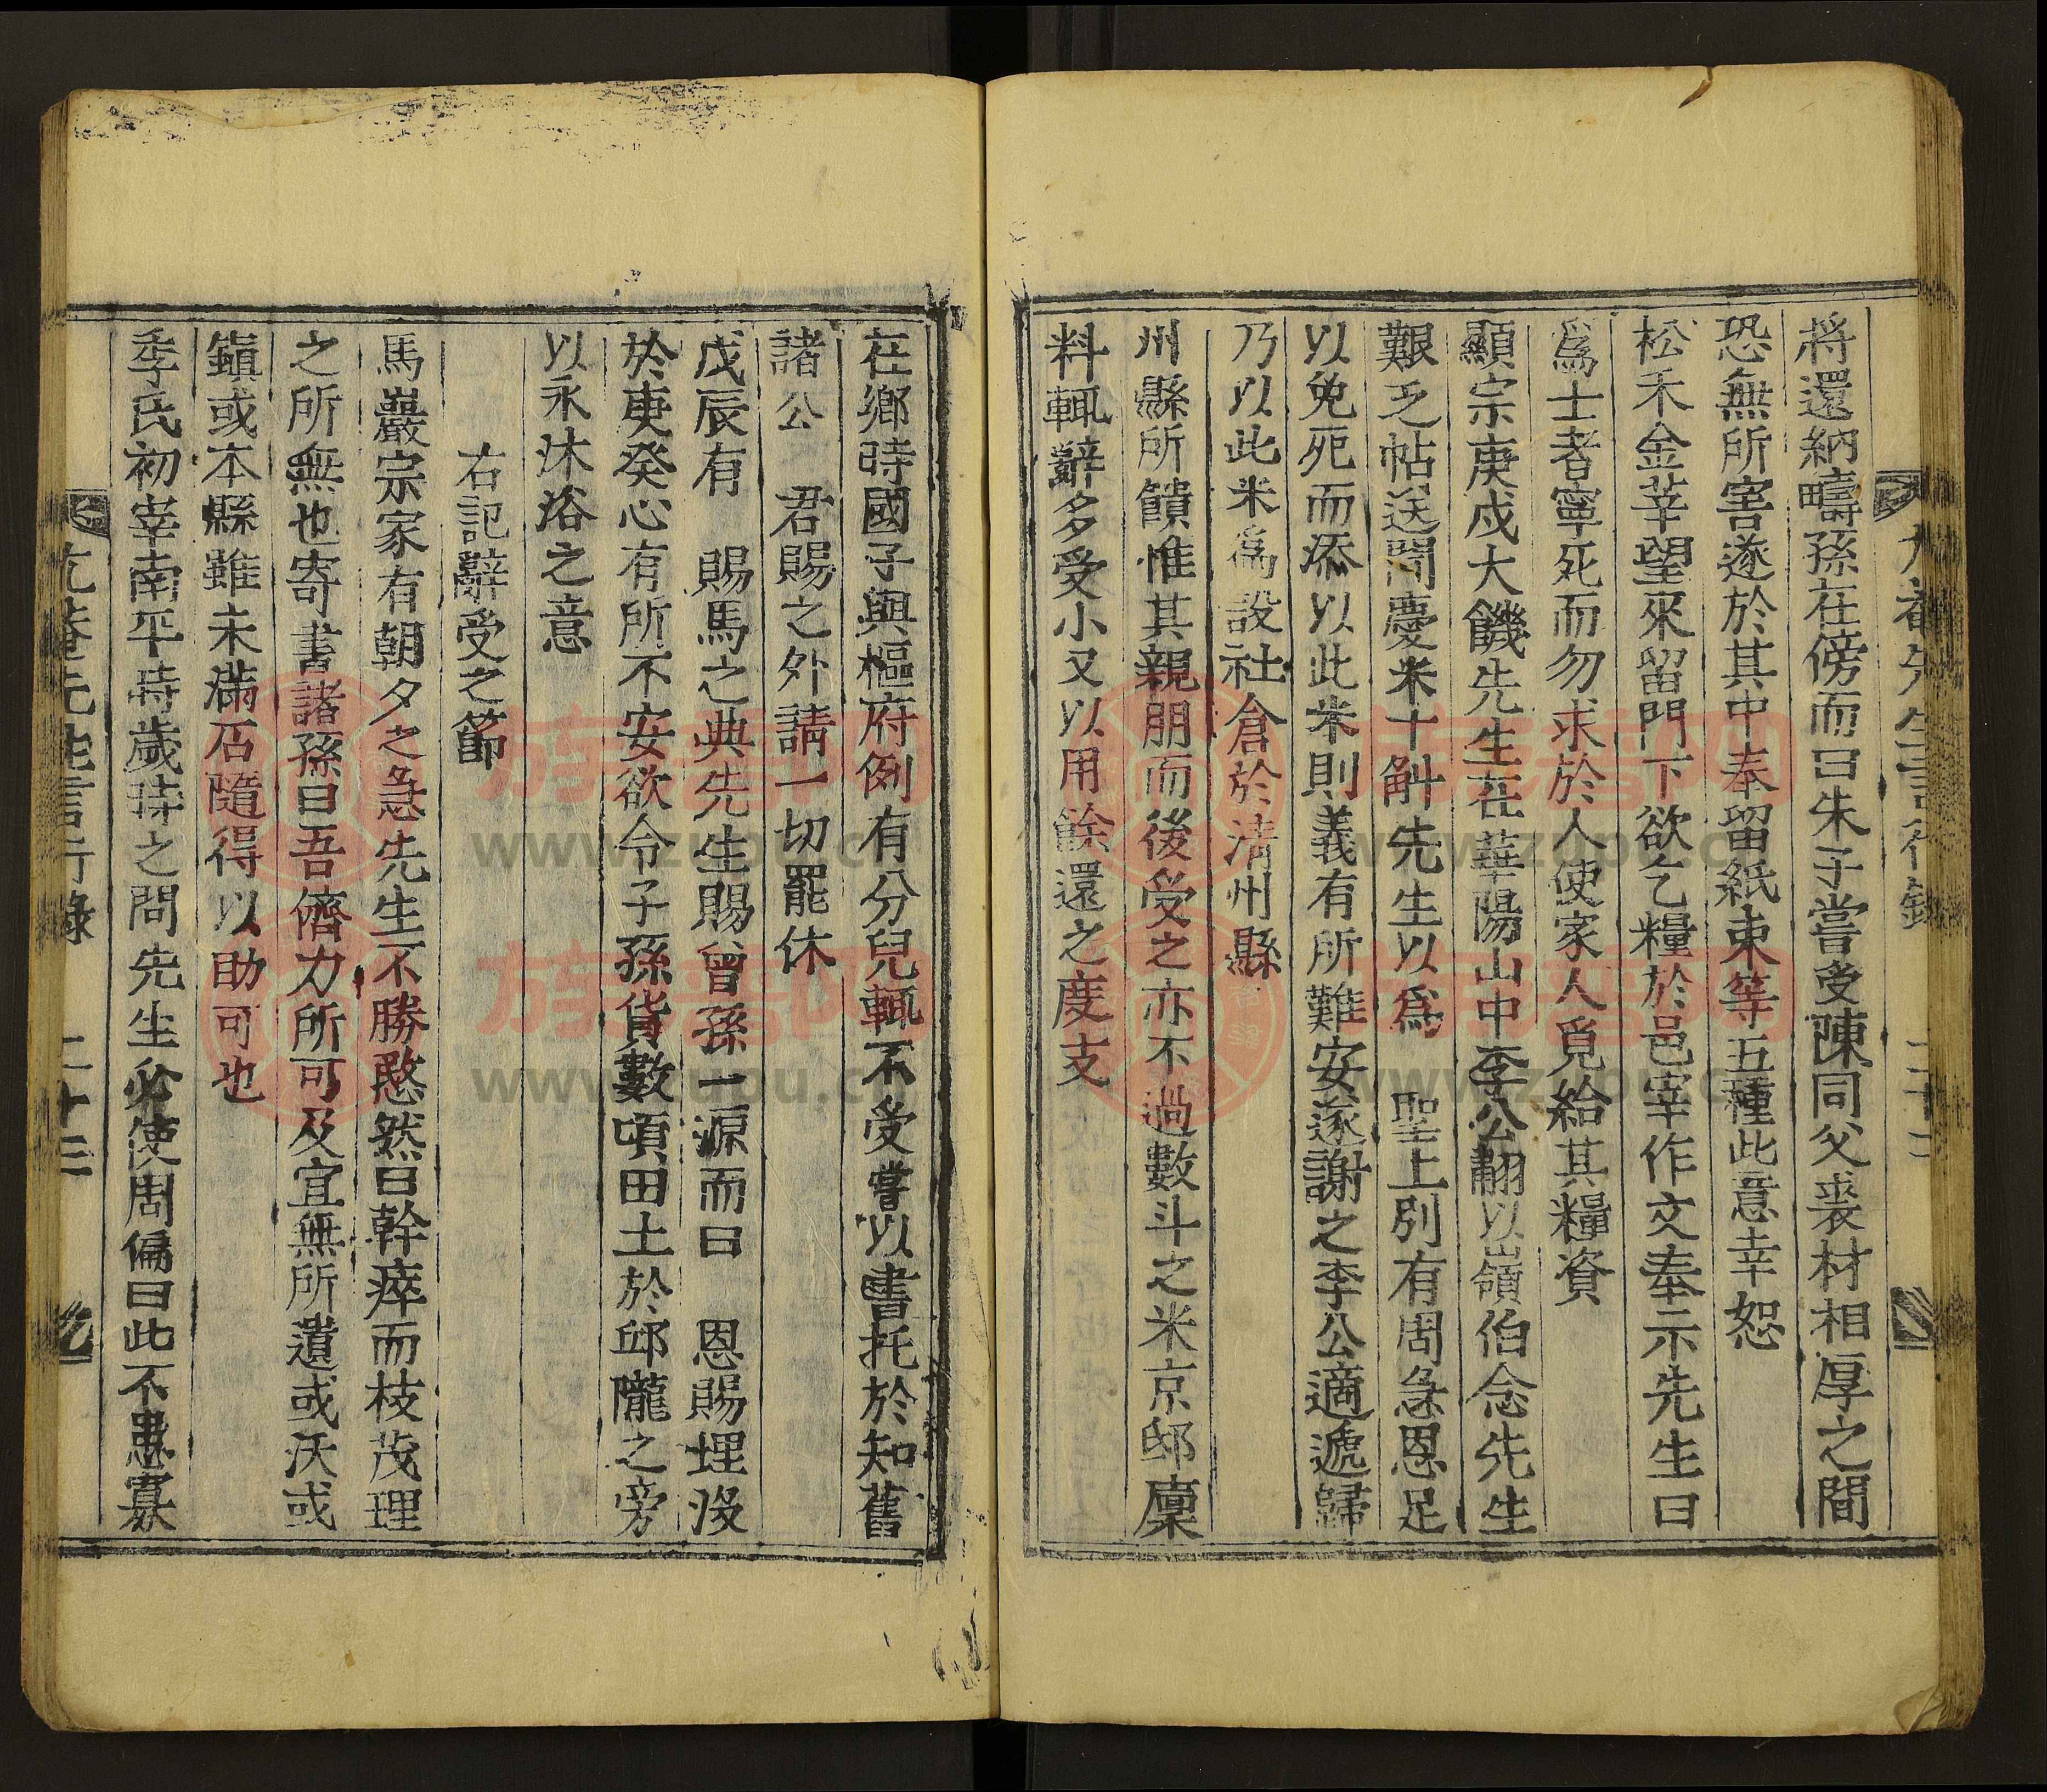 尤菴先生言行錄 二十二
將還納疇孫在傍而曰朱子嘗受陳同父裘材相厚之間
恐無所害遂於其中奉留紙束等五種此意幸恕
松禾金莘望來留門下欲乞糧於邑宰作文奉示先生曰
爲士者寧死而勿求於人使家人覓給其糧資
顯宗庚戌大饑先生在華陽山中李公翽以嶺伯念先生
艱乏帖送聞慶米十斛先生以爲 聖上別有周急恩足
以免死而添以此米則義有所難安遂謝之李公適遞歸
乃以此米爲設社倉於淸州縣
州縣所饋惟其親朋而後受之亦不過數斗之米京邸廩
料輒辭多受小又以用餘還之度支
在鄉時國子與樞府例有分兒輒不受嘗以書托於知舊
諸公 君賜之外請一切罷休
戊辰有 賜馬之典先生賜曾孫一源而曰 恩賜埋沒
於庚癸心有所不安欲令子孫貨數頃田土於邱隴之旁
以永沐浴之意
右記辭受之節
馬巖宗家有朝夕之急先生不勝愍然曰幹瘁而枝茂理
之所無也寄書諸孫曰吾儕力所可及宜無所遺或沃或
鎭或本縣雖未滿石隨得以助可也
季氏初宰南平時歲時之問先生必使周偏曰此不患寡
尤菴先生言行錄 二十三
族譜网
www.zupu.cn